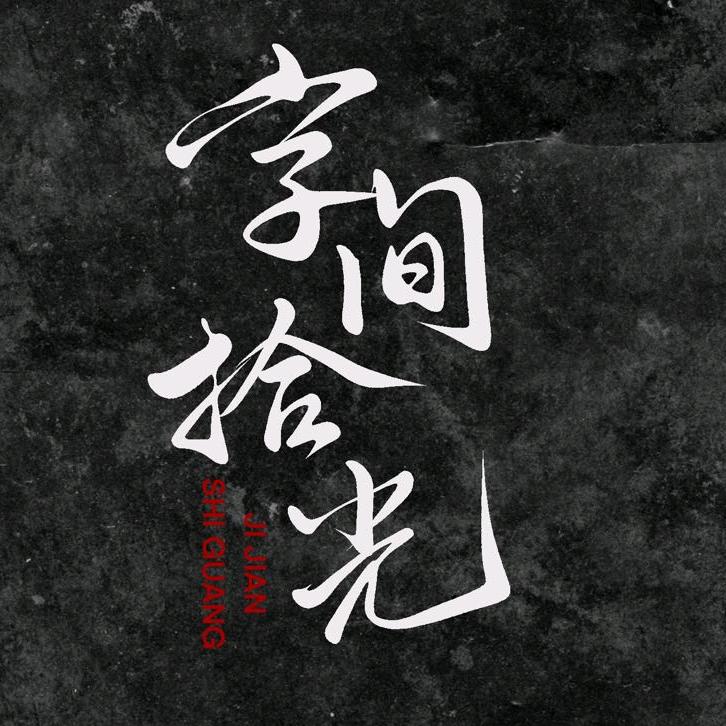 字间
拾光
JI JIAN
SHI GUANG